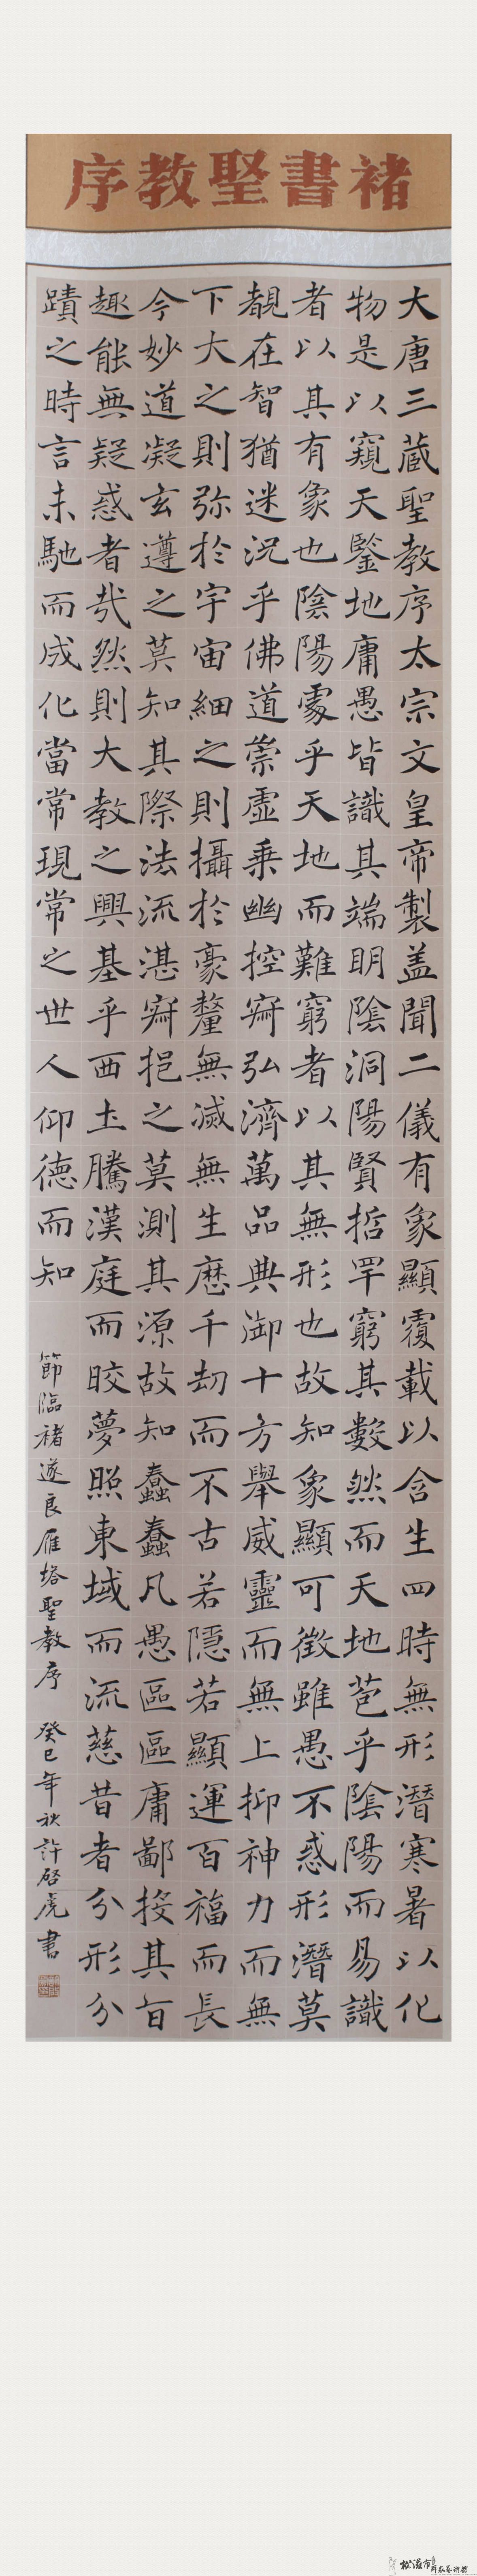 褚書聖教序
大唐三藏聖教序太宗文皇帝製盖聞二儀有象顯覆載以含生四時無形潛寒暑以化
物是以窺天鑒地庸愚皆識其端明陰洞陽賢哲罕窮其數然而天地苞乎陰陽而易識
者以其有象也陰陽處乎天地而難窮者以其無形也故知象顯可徵雖愚不惑形潛莫
覩在智猶迷況乎佛道崇虛乘幽控寂弘濟萬品典御十方舉威靈而無上抑神力而無
下大之則弥於宇宙細之則攝於豪釐無滅無生歷千劫而不古若隱若顯運百福而長
今妙道凝玄遵之莫知其際法流湛寂挹之莫測其源故知蠢蠢凡愚區區庸鄙投其旨
趣能無疑惑者哉然則大教之興基乎西土騰漢庭而晈夢照東域而流慈昔者分形分
蹟之時言未馳而成化當常現常之世人仰德而知
節臨褚遂良雁塔聖教序 癸巳年秋許啓虎書
松滋市